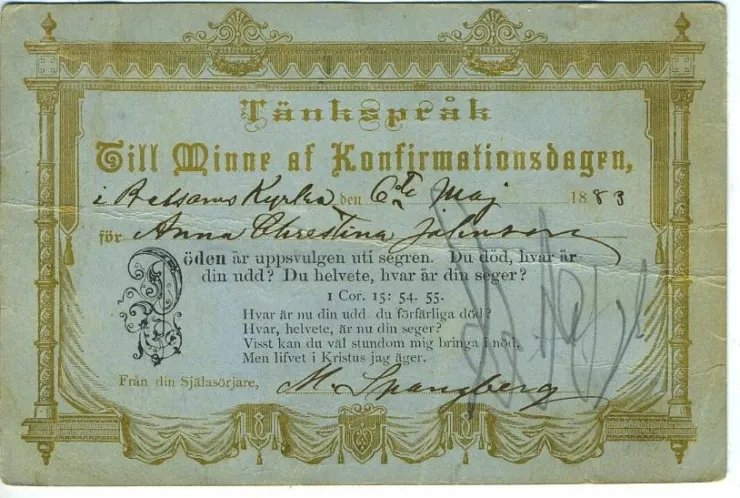 Tänkspråk
Till Minne af Konfirmationsdagen,
i Balsams Kyrka den 6te Maj 1883
för Anna Christina Johnson
Döden är uppsvulgen uti segren. Du död, hvar är
din udd? Du helvete, hvar är din seger?
1 Cor. 15: 54. 55.
Hvar är nu din udd du förfärliga död?
Hvar, helvete, är nu din seger?
Visst kan du väl stundom mig bringa i nöd,
Men lifvet i Kristus jag äger.
Från din Själasörjare, M. Spangberg